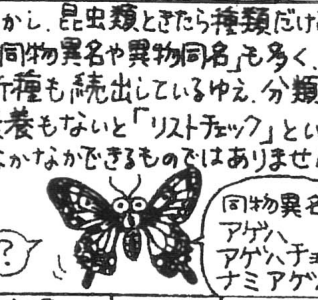 かし、昆虫類ときたら種類だけ
同物異名や異物同名」も多く、
新種も続出しているゆえ、分類
養もないと「リストチェック」とい
なかなかできるものではありませ
?
同物異名
アゲハ
アゲハチョ
ナミアゲ